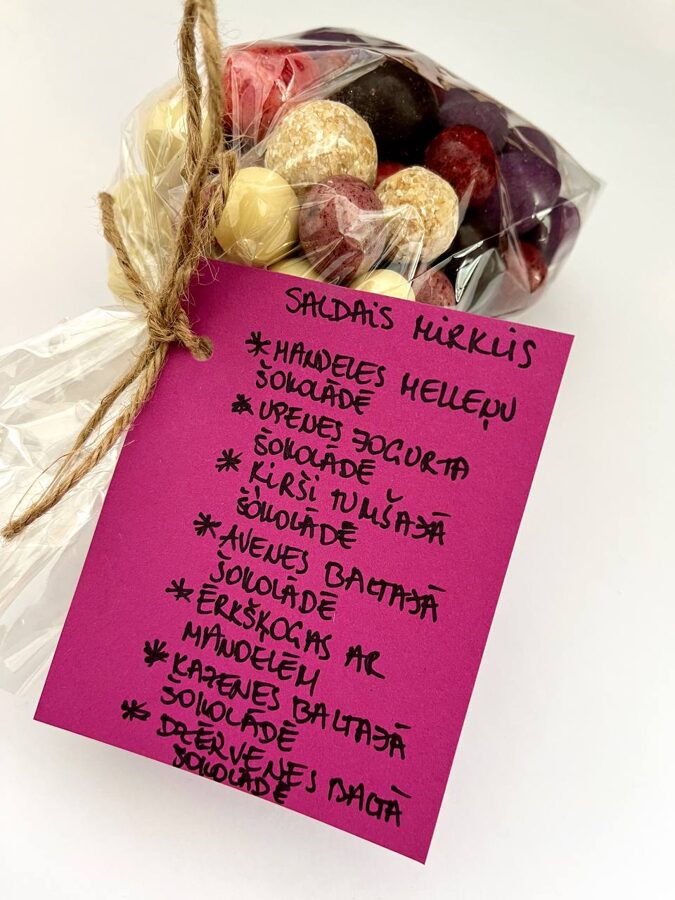 SALDAIS MIRKLIS
*MANDELES MELLEŅU
ŠOKOLĀDĒ
*UPENES JOGURTA
ŠOKOLĀDĒ
*ĶIRŠI TUMŠAJĀ
ŠOKOLĀDĒ
*AVENES BALTAJĀ
ŠOKOLĀDĒ
*ĒRKŠĶOGAS AR
MANDELĒM
*KAZENES BALTAJĀ
ŠOKOLĀDĒ
*DZĒRVENES BALTĀ
ŠOKOLĀDĒ